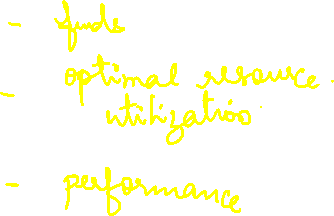 - funds
- optimal resource
utilization
- performance